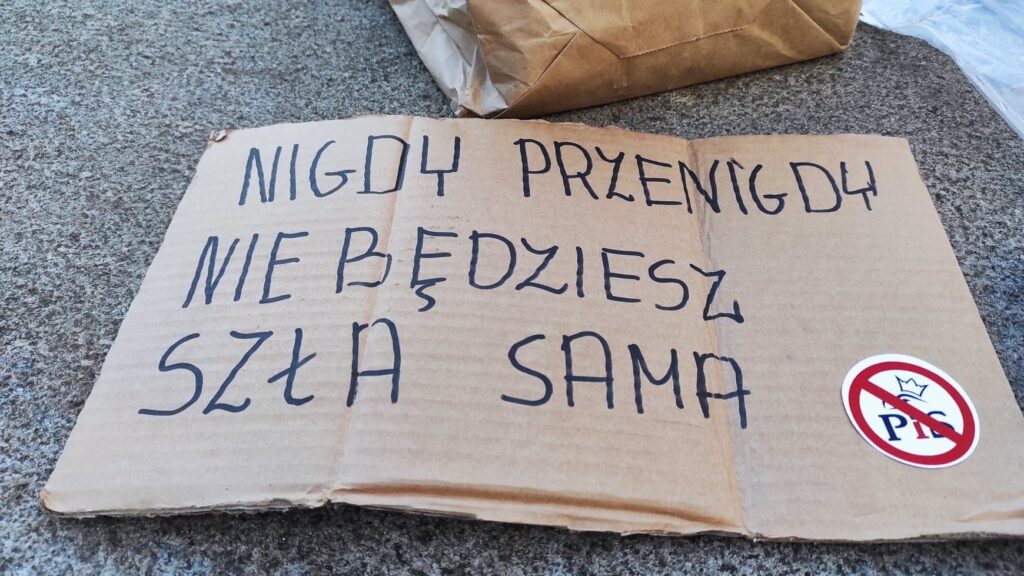 NIGDY PRZENIGDY
NIE BĘDZIESZ
SZŁA SAMA
PiS